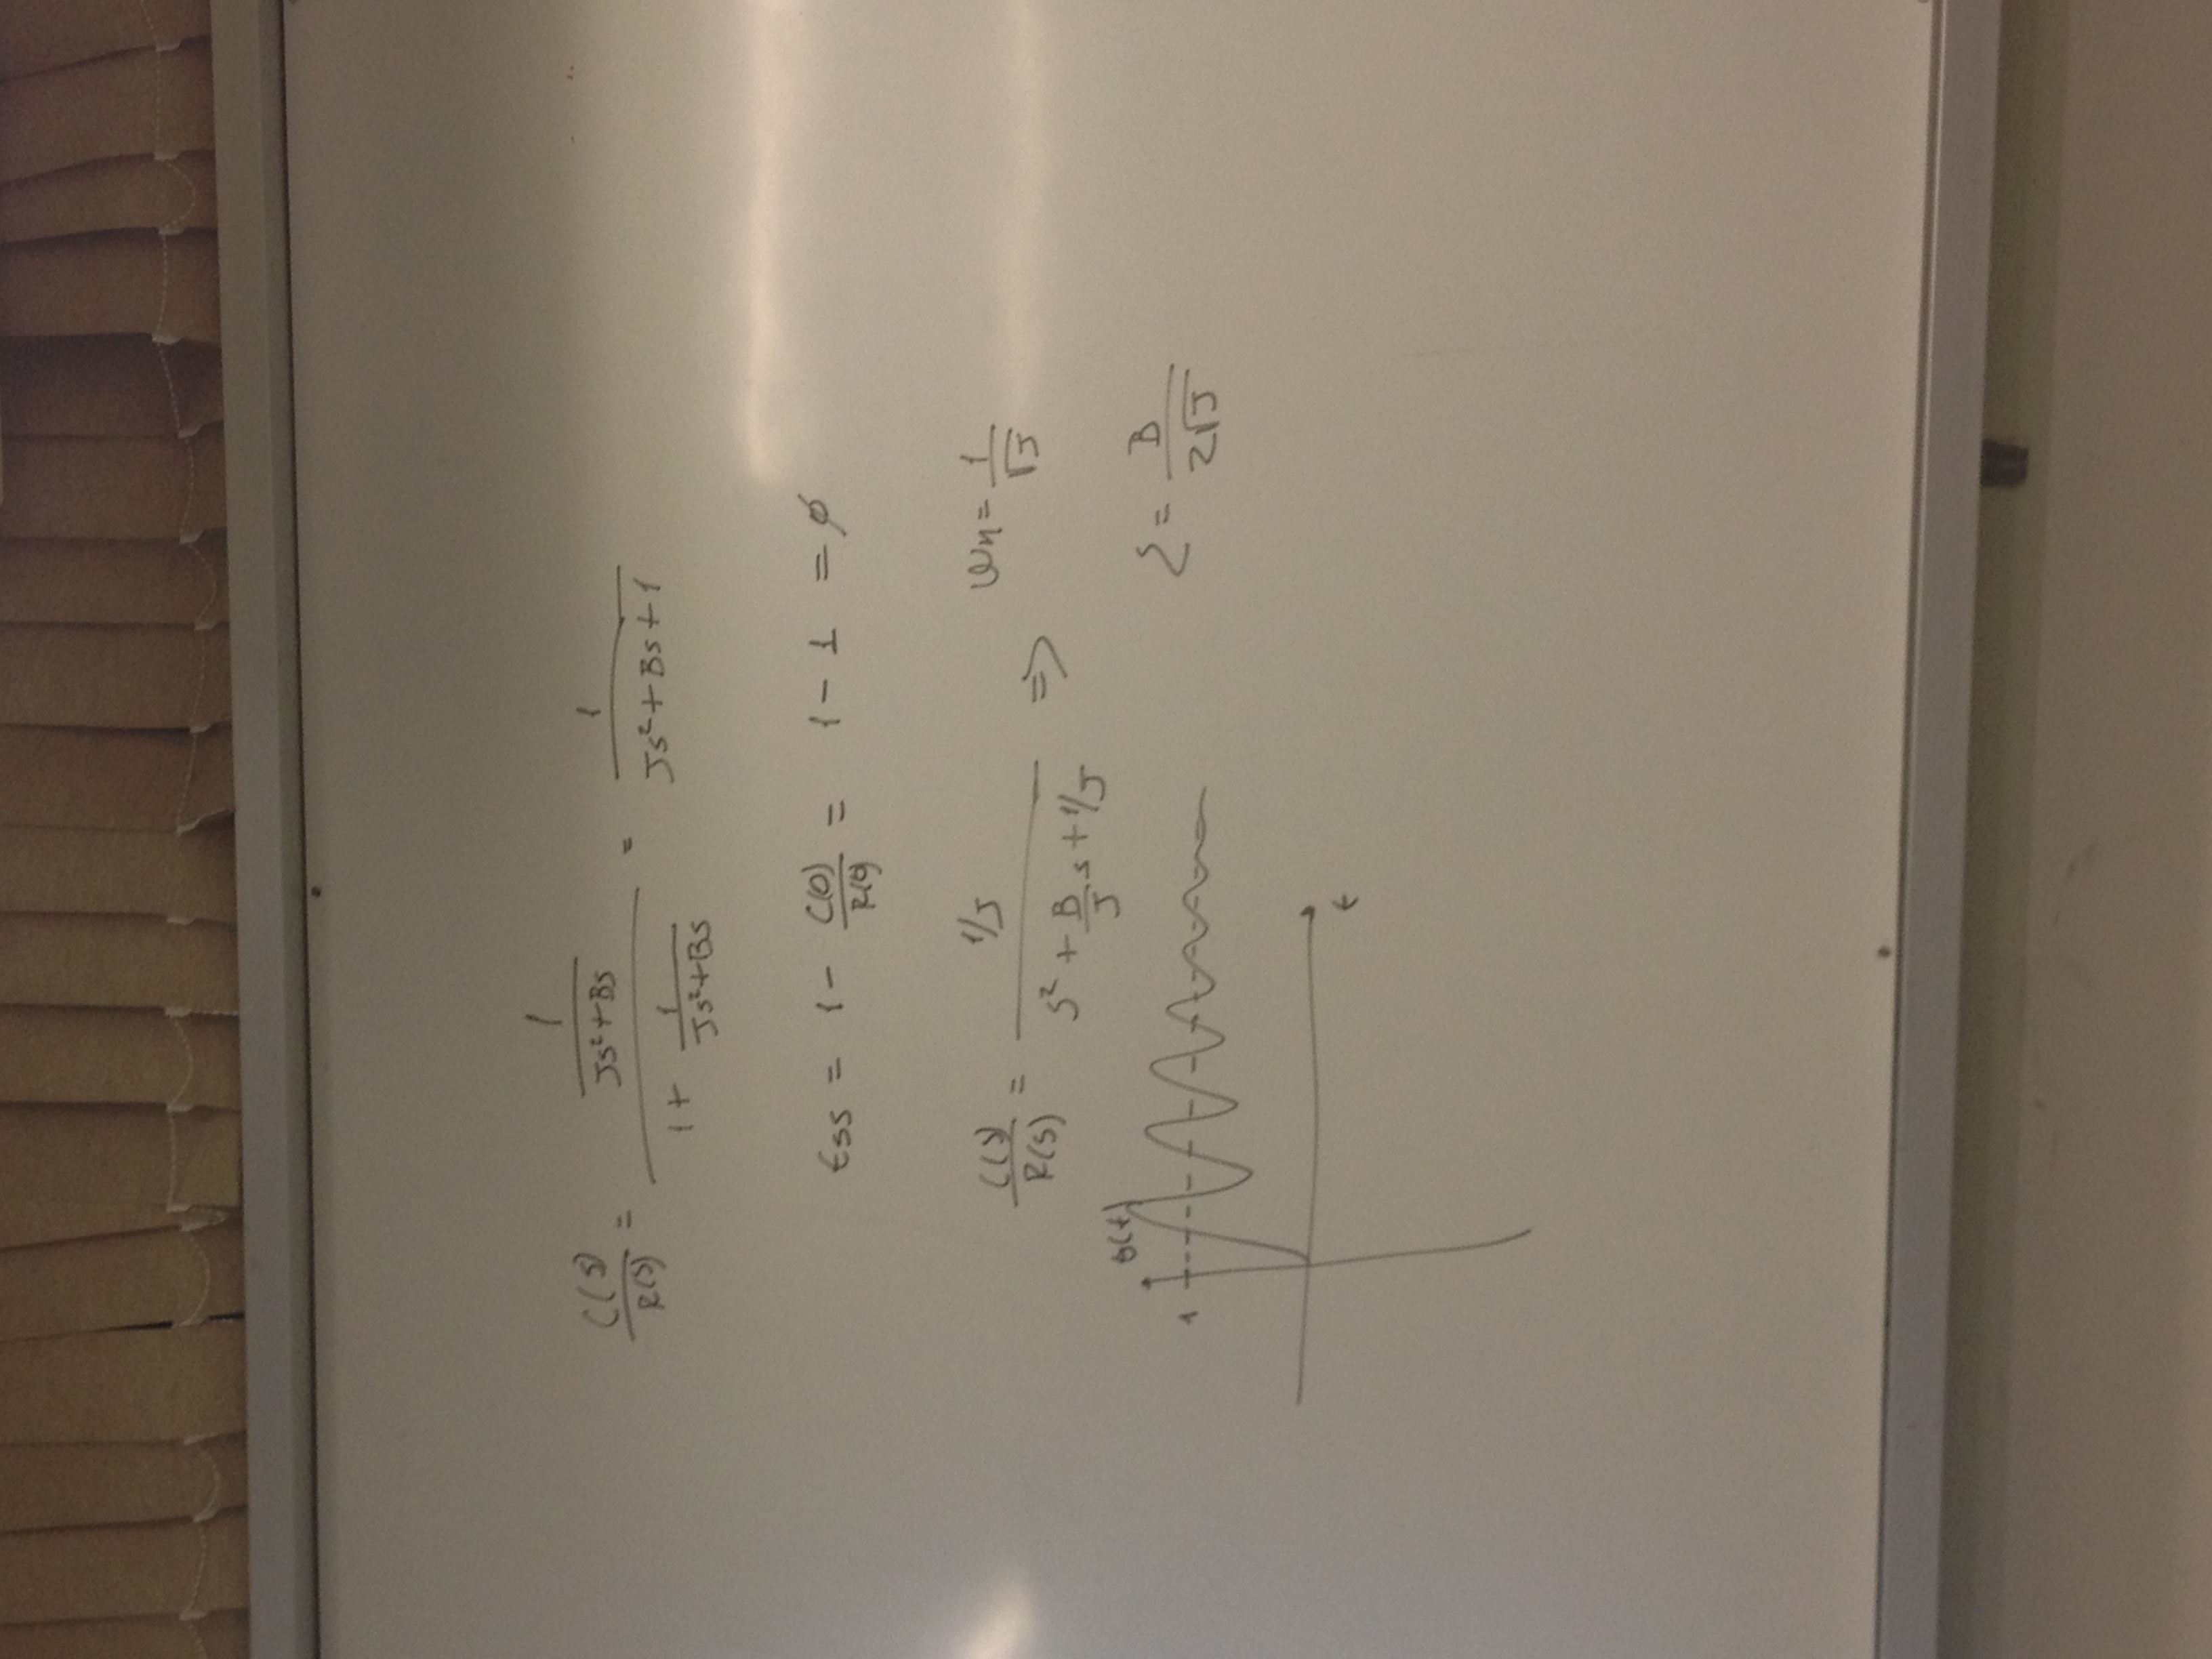 C(s)/R(s) = (1/(Js²+Bs))/(1+ 1/(Js²+Bs)) = 1/(Js²+Bs+1)
ess = 1 - C(0)/R(0) = 1 - 1 = ϕ
C(s)/R(s) = (1/J)/(s² + B/J s + 1/J) => ωn = 1/√J
θ(t)
1
ξ = B/(2√J)
t